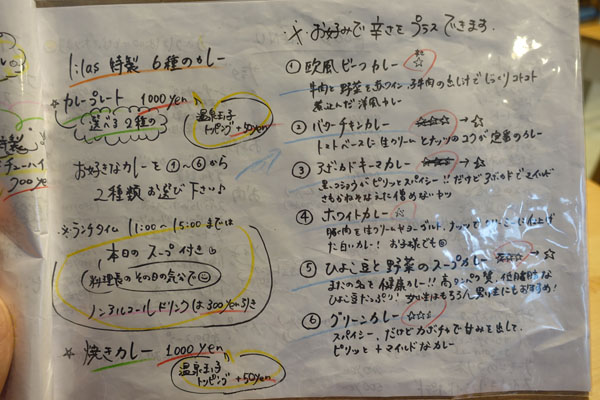 lilas 特製 6種のカレー
☆ カレープレート 1000 yen
選べる 2種の
温泉玉子
トッピング +50yen
お好きなカレーを ①〜⑥から
2種類 お選び下さい♪
※ランチタイム 11:00〜15:00までは
本日の スープ付き
料理長のその日の気分で
ノンアルコールドリンクは 300yen引き
☆ 焼きカレー 1000 yen
温泉玉子
トッピング +50yen
※ お好みで 辛さを プラス できます.
① 欧風ビーフカレー ☆
牛肉と野菜を赤ワイン、でじっくりコトコト
煮込んだ 洋風カレー
② バターチキンカレー ☆☆☆ → ☆
トマトベースに生クリームとナッツのコクが定番のカレー
③ アボカドキーマカレー ☆☆☆ → ☆
黒コショウがピリッとスパイシー!! だけどアボカドでマイルド
さもかねそなえた憎めないヤツ
④ ホワイトカレー ☆
豚肉を生クリーム、ヨーグルト、ナッツで仕上げ
た白いカレー! お子様でも
⑤ ひよこ豆と野菜のスープカレー ☆☆☆ → ☆
またの名を 健康カレー!! 高タンパク質、低脂肪な
ひよこ豆たっぷり! 女性はもちろん男性にもおすすめ!
⑥ グリーンカレー ☆☆☆
スパイシー、だけどカボチャで甘みを出して、
ピリッと + マイルドなカレー
700 yen